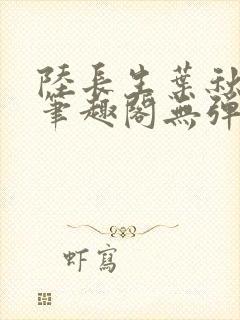 陸長生葉秋
筆趣閣無彈
虾寫